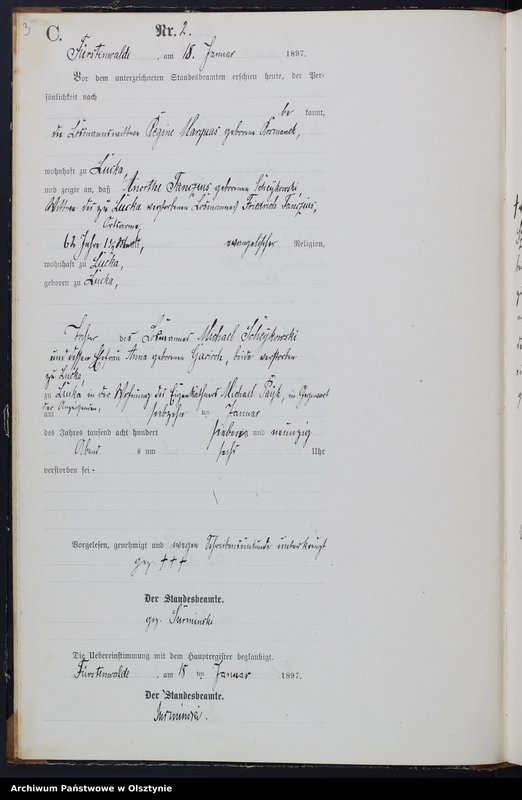 3
C.
Nr. 2.
Fürstenwalde, am 18. Januar 1897.
Vor dem unterzeichneten Standesbeamten erschien heute, der Per-
sönlichkeit nach
be kannt,
die Losmannswittwe Regine Marquas geborene
wohnhaft zu Lucka,
und zeigte an, daß Anorthe geborene Scheykowski
Wittwe des zu Lucka verstorbenen Losmannes Friedrich
Ortsarme,
62 Jahre 1½ Monat, evangelischer Religion,
wohnhaft zu Lucka,
geboren zu Lucka,
Tochter des Losmannes Michael Scheykowski
und dessen Ehefrau Anna geborenen beide verstorben
zu Lucka,
zu Lucka in der Wohnung des Eigenkäthners Michael in Gegenwart
der Anzeigenden,
am siebzehn ten Januar
des Jahres tausend acht hundert sieben und neunzig
Abend s um sechs Uhr
verstorben sei.
Vorgelesen, genehmigt und wegen Schreibensunkunde unterkreuzt
gez. +++
Der Standesbeamte.
gez. Surminski
Die Uebereinstimmung mit dem Hauptregister beglaubigt.
Fürstenwalde, am 18 ten Januar 1897.
Der Standesbeamte.
Surminski.
Archiwum Państwowe w Olsztynie